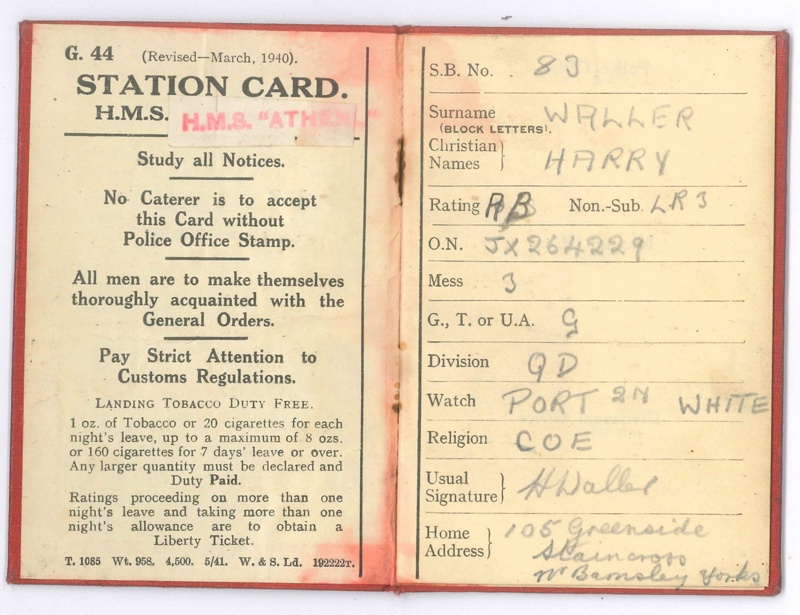 G. 44 (Revised—March, 1940).
STATION CARD.
H.M.S. H.M.S. "ATHENE"
Study all Notices.
No Caterer is to accept
this Card without
Police Office Stamp.
All men are to make themselves
thoroughly acquainted with the
General Orders.
Pay Strict Attention to
Customs Regulations.
LANDING TOBACCO DUTY FREE.
1 oz. of Tobacco or 20 cigarettes for each
night's leave, up to a maximum of 8 ozs.
or 160 cigarettes for 7 days' leave or over.
Any larger quantity must be declared and
Duty Paid.
Ratings proceeding on more than one
night's leave and taking more than one
night's allowance are to obtain a
Liberty Ticket.
T. 1085 Wt. 958. 4,500. 5/41. W. & S. Ld. 192222T.
S.B. No. 83
Surname WALLER
(BLOCK LETTERS).
Christian
Names } HARRY
Rating AB Non.-Sub. LR3
O.N. JX264229
Mess 3
G., T. or U.A. G
Division QD
Watch PORT 2N WHITE
Religion COE
Usual
Signature } H Waller
Home
Address } 105 Greenside
Staincross
Nr Barnsley Yorks